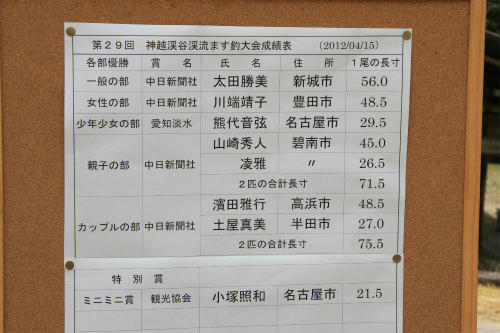 第29回 神越渓谷渓流ます釣大会成績表 (2012/04/15)
各部優勝 賞名 氏名 住所 1尾の長寸
一般の部 中日新聞社 太田勝美 新城市 56.0
女性の部 中日新聞社 川端靖子 豊田市 48.5
少年少女の部 愛知淡水 熊代音弦 名古屋市 29.5
山崎秀人 碧南市 45.0
親子の部 中日新聞社 凌雅 〃 26.5
2匹の合計長寸 71.5
濱田雅行 高浜市 48.5
カップルの部 中日新聞社 土屋真美 半田市 27.0
2匹の合計長寸 75.5
特別賞
ミニミニ賞 観光協会 小塚照和 名古屋市 21.5